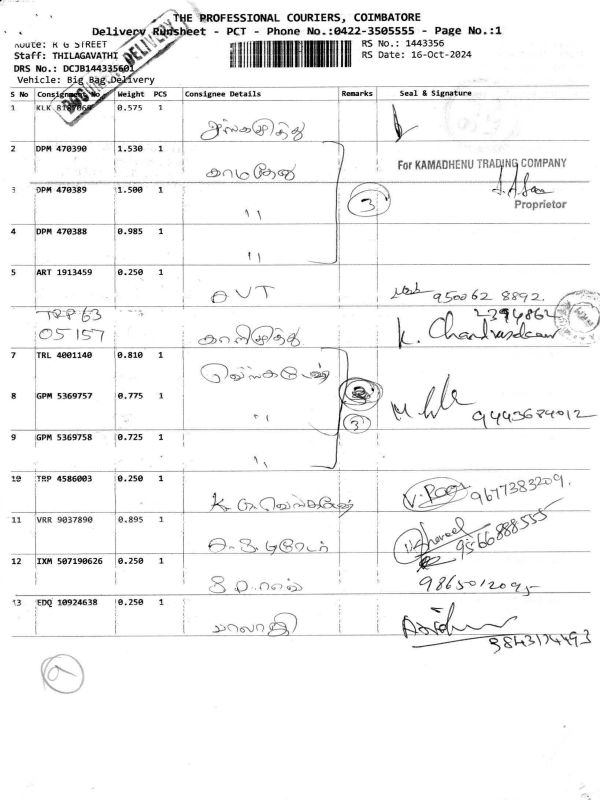 THE PROFESSIONAL COURIERS, COIMBATORE
Delivery Runsheet - PCT - Phone No.:0422-3505555 - Page No.:1
Route: R G STREET
RS No.: 1443356
Staff: THILAGAVATHI
RS Date: 16-Oct-2024
DRS No.: DCJB144335601
Vehicle: Big Bag Delivery
DOCUMENT DELIVERY
S No Consignment No Weight PCS Consignee Details Remarks Seal & Signature
1 KLK 0.575 1
2 DPM 470390 1.530 1 காமதேனு
For KAMADHENU TRADING COMPANY
3 DPM 470389 1.500 1 " 3
Proprietor
4 DPM 470388 0.985 1 "
5 ART 1913459 0.250 1 AVT 950062 8892
TRP 63 2394862
05157 K. Chandrasekaran
7 TRL 4001140 0.810 1
8 GPM 5369757 0.775 1 " 9443684012
3
9 GPM 5369758 0.725 1 "
10 TRP 4586003 0.250 1 V. Pooja 9677383209.
11 VRR 9037890 0.895 1 9566888555
12 IXM 507190626 0.250 1 9865012095
13 EDQ 10924638 0.250 1 பாலாஜி
9843124493
a